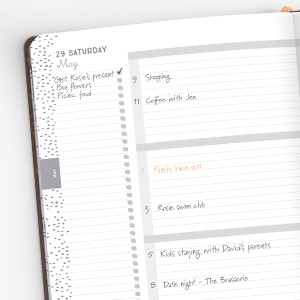 29 SATURDAY
May
Get Rosie's present ✓
Buy flowers
Picnic food
9 Shopping
11 Coffee with Jen
1 Family lunch out!
3 Rosie swim club
5 Kids staying with David's parents
8 Date night - The Brasserie